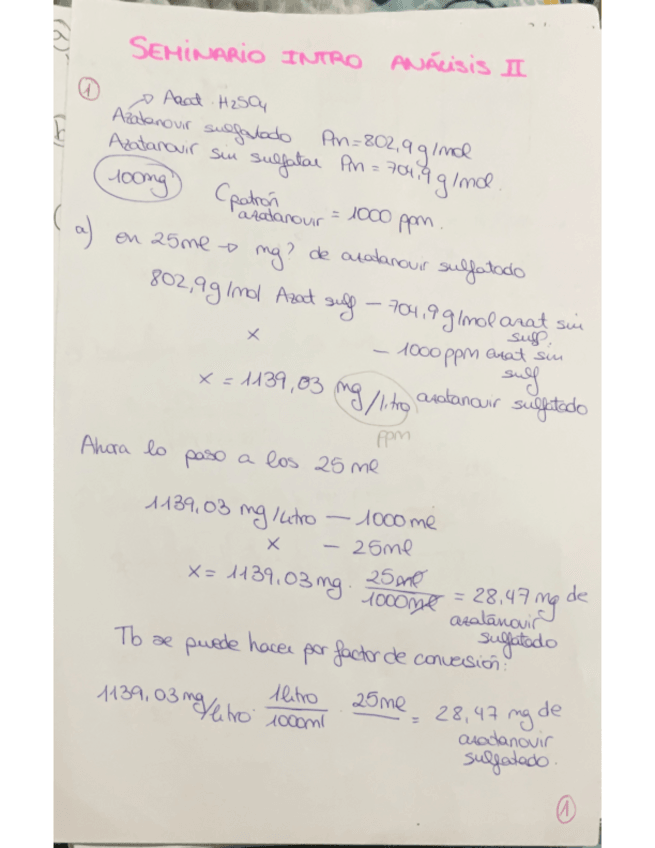 SEMINARIO INTRO ANÁLISIS II
1
→ Azat · H2SO4
Azatanovir sulfatado Pm=802,9 g/mol
Azatanovir sin sulfatar Pm = 704,9 g/mol.
100mg
Cpatrón azatanovir = 1000 ppm.
a) en 25ml → mg? de azatanovir sulfatado
802,9g/mol Azat sulf — 704,9 g/mol azat sin sulf.
x — 1000 ppm azat sin sulf
x = 1139,03 mg/litro azatanovir sulfatado
ppm
Ahora lo paso a los 25 ml
1139,03 mg/litro — 1000 ml
x — 25ml
x = 1139,03 mg · 25ml / 1000ml = 28,47 mg de azatanovir sulfatado
Tb se puede hacer por factor de conversión:
1139,03 mg/litro · 1litro / 1000ml · 25ml = 28,47 mg de azatanovir sulfatado.
1